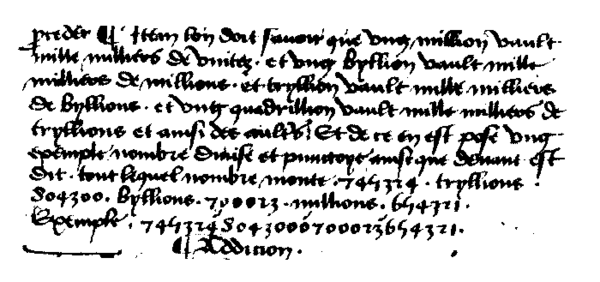 preceder ¶ Item lon doit savoir que ung million vault
mille milliers de unitez · et ung byllion vault mille
milliers de millions · et tryllion vault mille milliers
de byllions · et ung quadrillion vault mille milliers de
tryllions et ainsi des aultrs Et de ce en est pose ung
exemple nombre divise et punctoye ainsi que devant est
dit · tout lequel nombre monte · 745324 · tryllions ·
804300 · byllions · 700023 · millions · 654321 ·
Exemple · 745324'8043000'700023'654321 ·
¶ Addicion ·